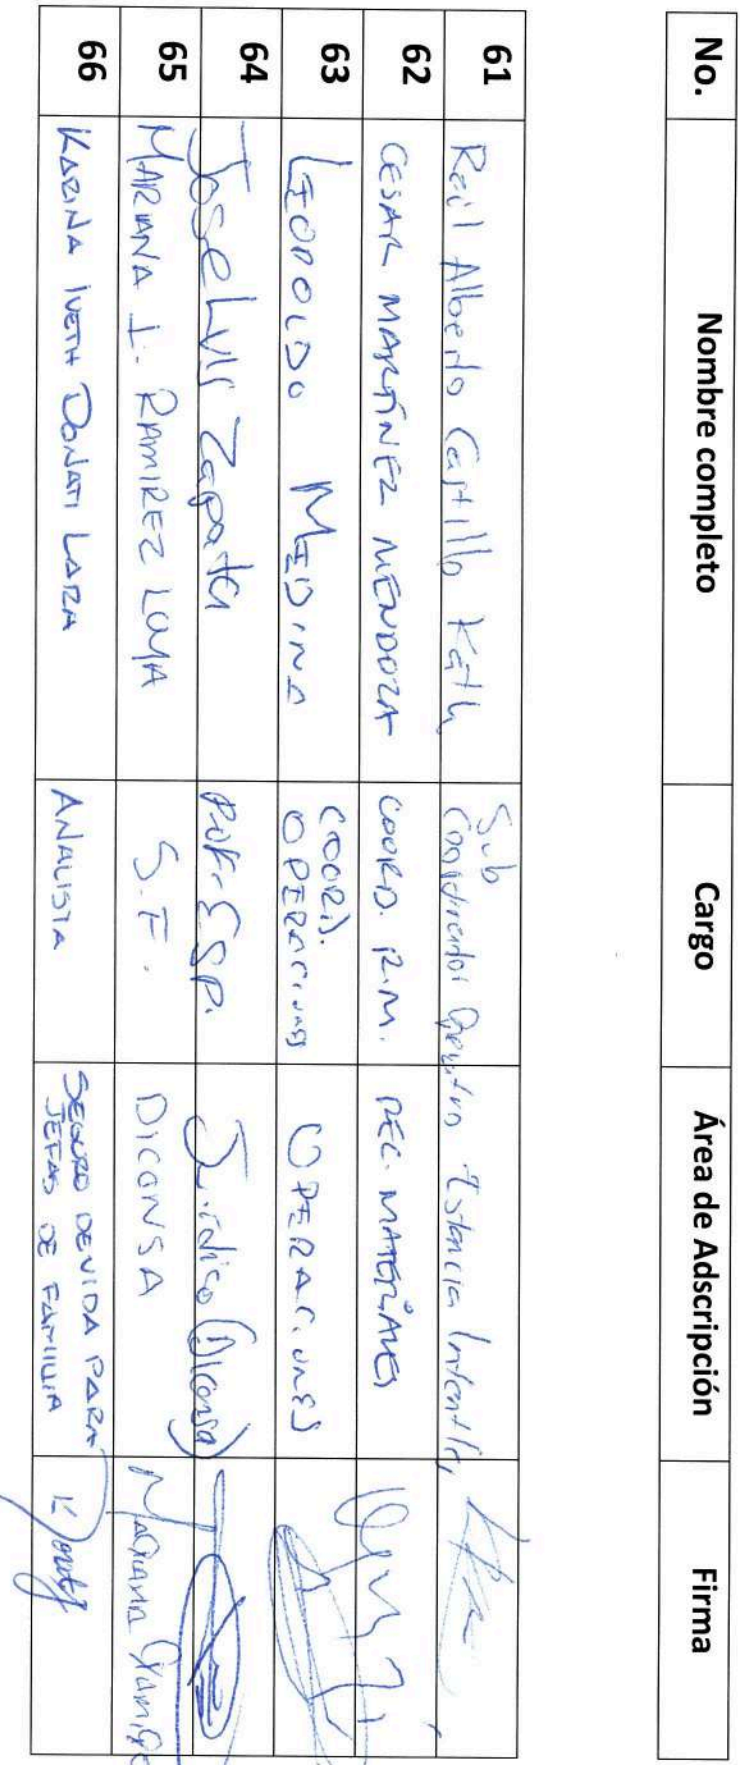 No. Nombre completo Cargo Área de Adscripción Firma
61 Raúl Alberto Castillo Sub Coordinador Operativo Estancia Infantil
62 CESAR MARTÍNEZ MENDOZA COORD. R.M. REC. MATERIALES
63 LEOPOLDO MEDINA COORD. OPERACIONES OPERACIONES
64 Jose Luis Zapata Prof. Esp. Jurídico (Diconsa)
65 MARIANA I. RAMIREZ LOYA S.F. DICONSA Mariana
66 KARINA IVETH DONATI LARA ANALISTA SEGURO DE VIDA PARA
JEFAS DE FAMILIA